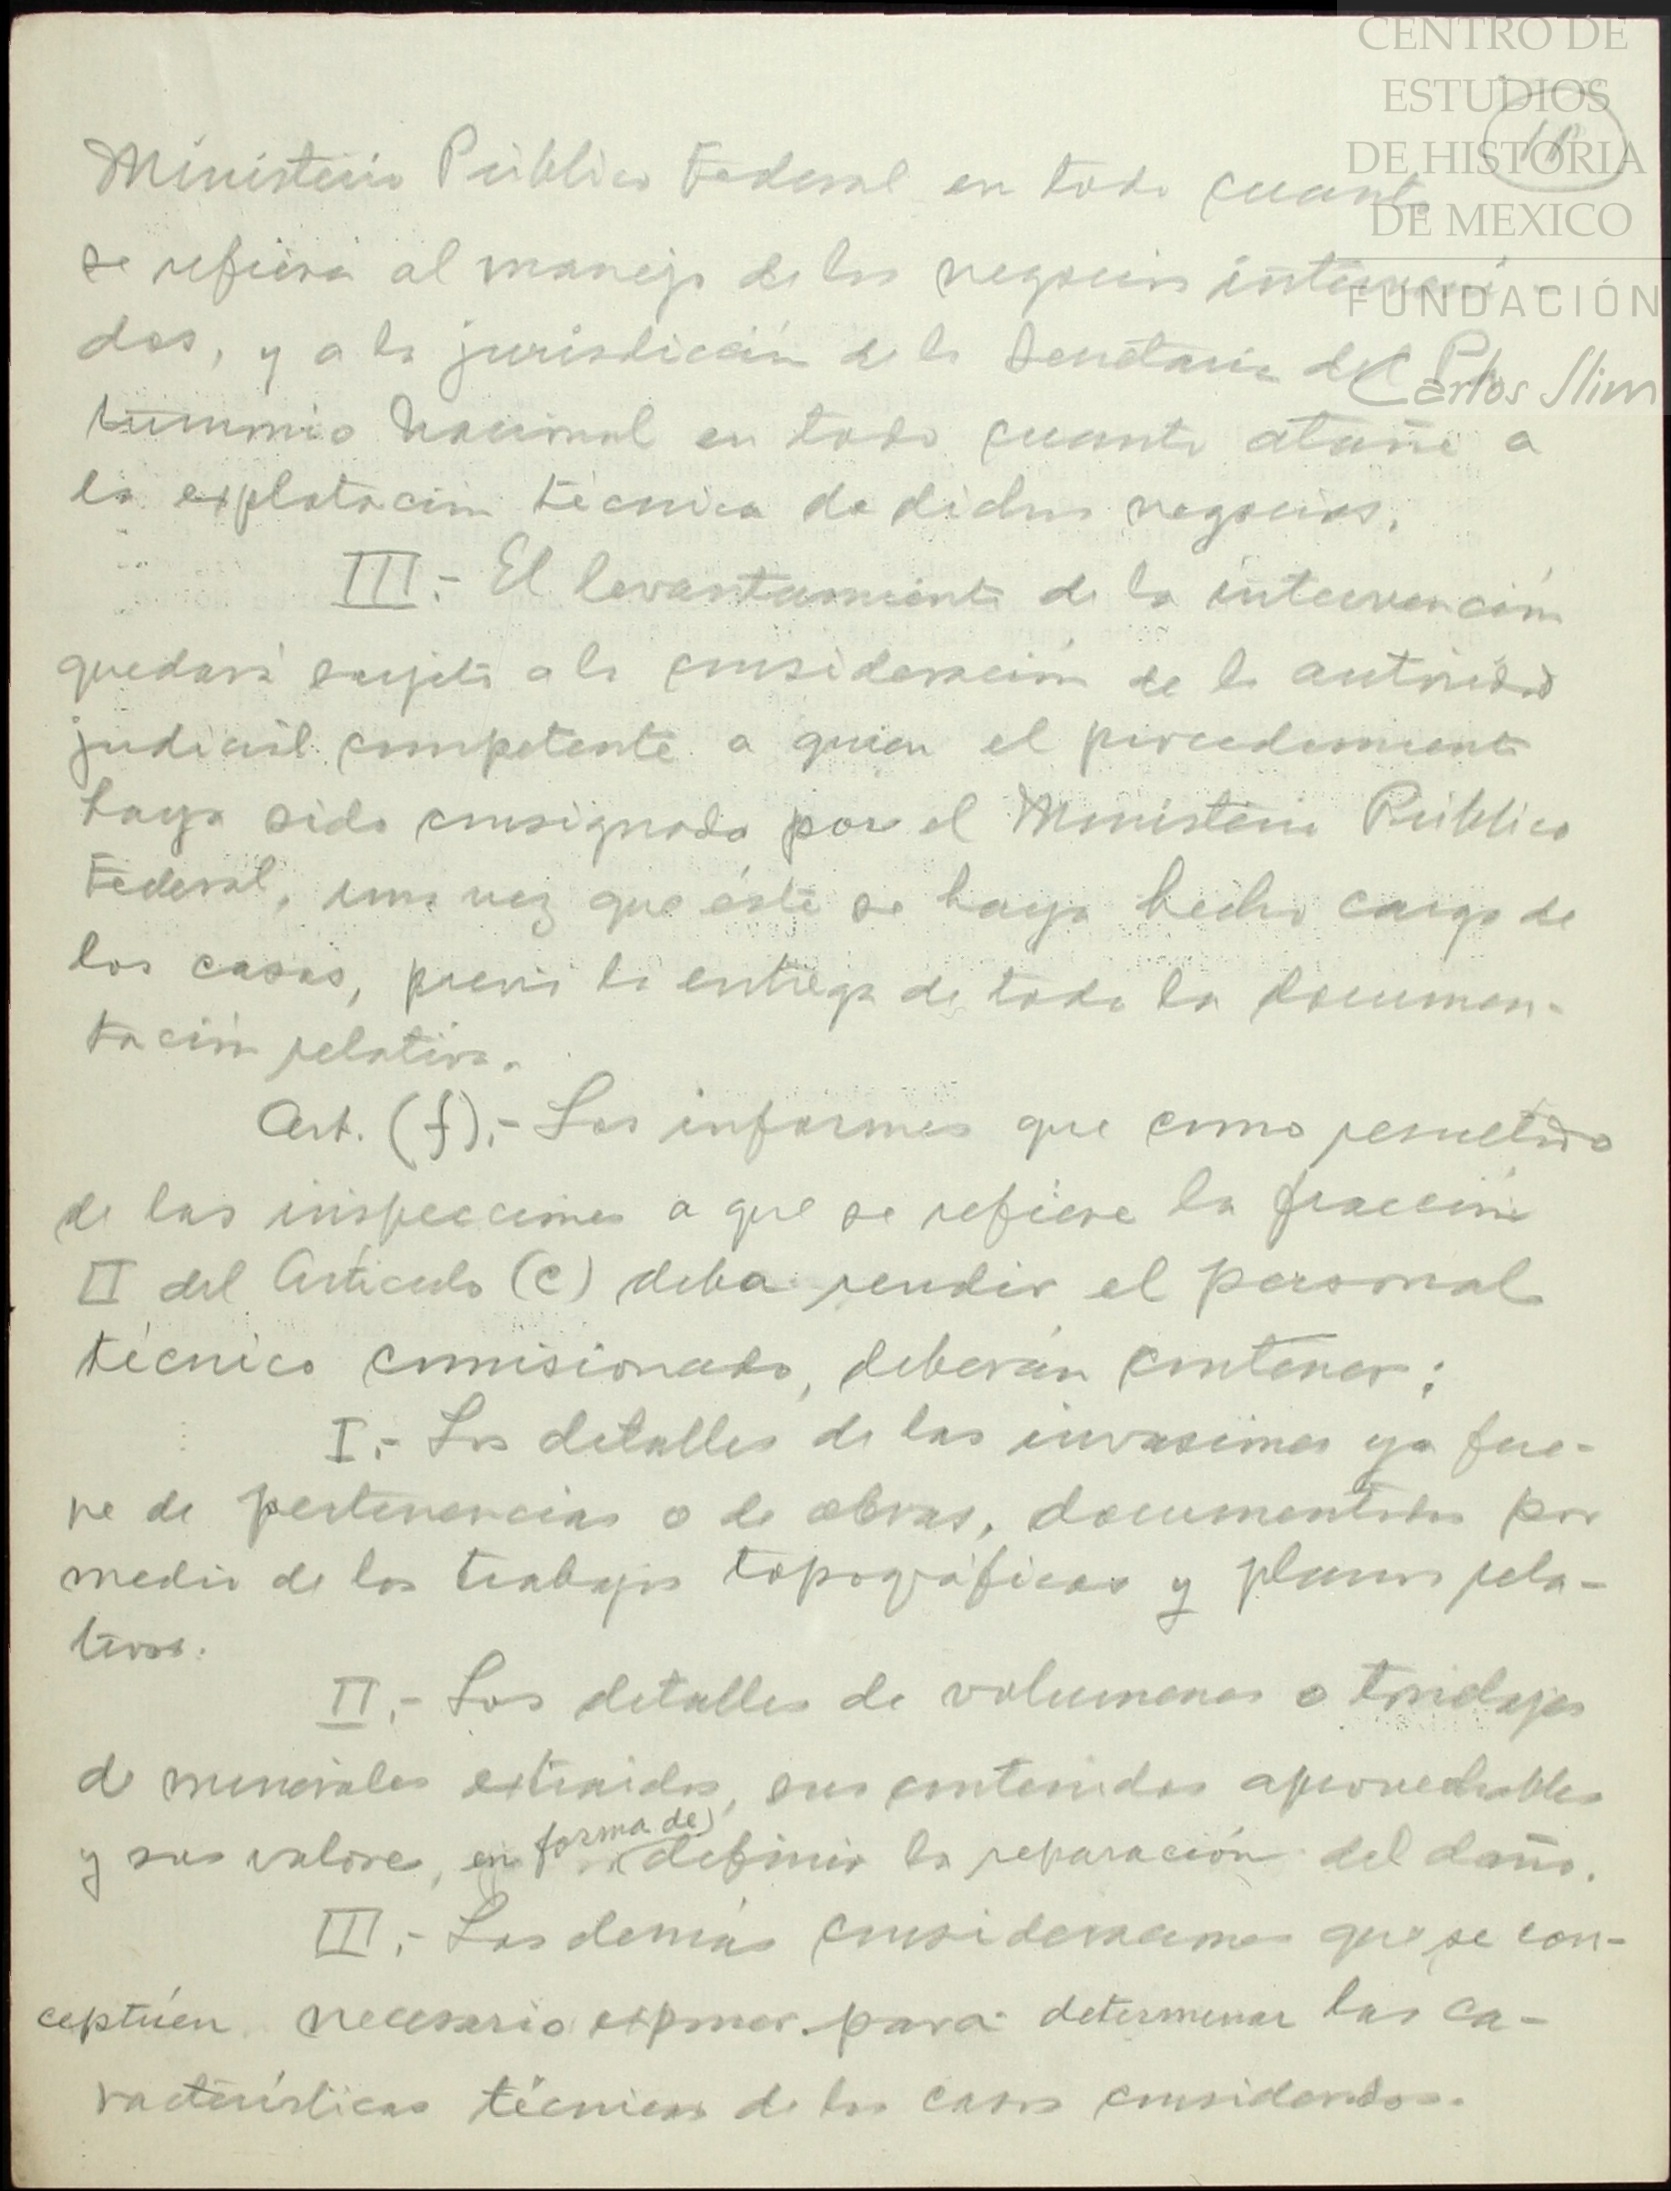 CENTRO DE
ESTUDIOS
DE HISTORIA
DE MEXICO
FUNDACIÓN
Carlos Slim
Ministerio Público Federal en todo cuanto
se refiera al manejo de los negocios interveni-
dos, y a la jurisdicción de la Secretaría del Pa-
trimonio Nacional en todo cuanto atañe a
la explotación técnica de dichos negocios.
III.- El levantamiento de la intervención
quedará sujeto a la consideración de la autoridad
judicial competente a quien el procedimiento
haya sido consignado por el Ministerio Público
Federal, una vez que éste se haya hecho cargo de
los casos, previa la entrega de toda la documen-
tación relativa.
Art. (f).- Los informes que como resultado
de las inspecciones a que se refiere la fracción
II del Artículo (c) deba rendir el personal
técnico comisionado, deberán contener:
I.- Los detalles de las invasiones ya fue-
re de pertenencias o de obras, documentados por
medio de los trabajos topográficos y planos rela-
tivos.
II.- Los detalles de volumenes o tonelajes
de minerales extraidos, sus contenidos aprovechables
y sus valores, en forma de definir la reparación del daño.
III.- Las demás consideraciones que se con-
ceptúen necesario exponer para determinar las ca-
racterísticas técnicas de los casos considerados.